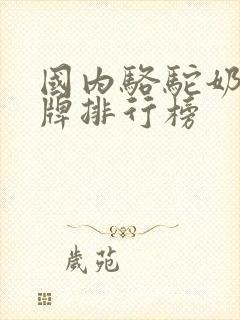 國内駱駝奶
牌排行榜
歲苑